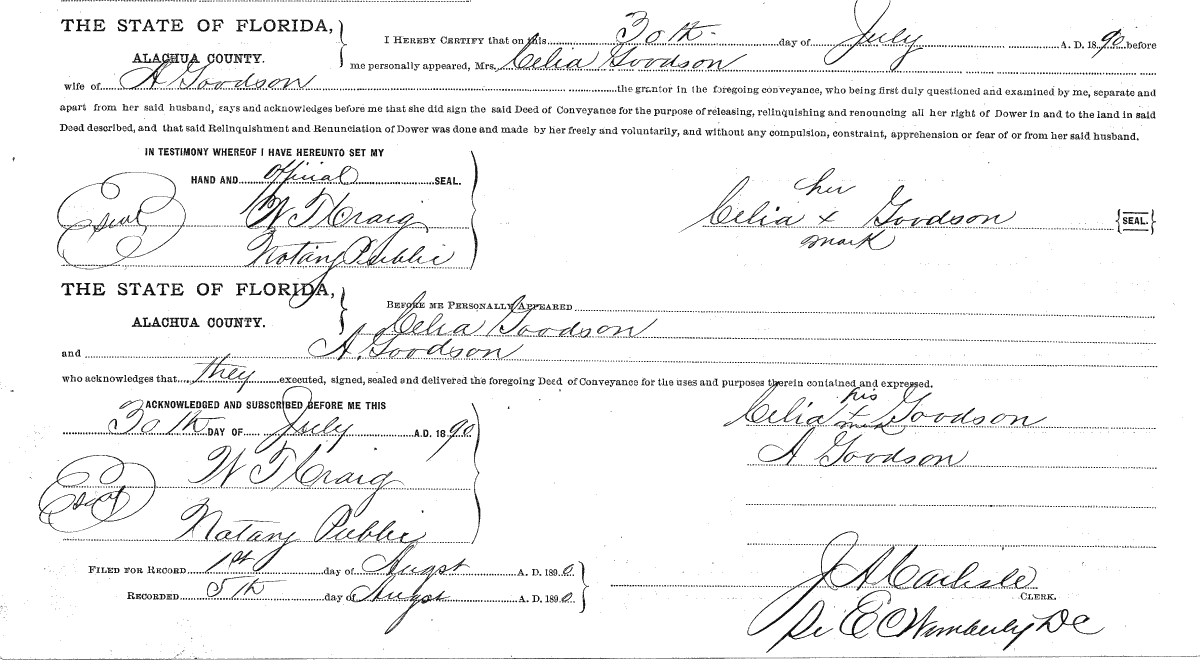 THE STATE OF FLORIDA,
ALACHUA COUNTY.
I HEREBY CERTIFY that on this 30th day of July A. D. 1890 before
me personally appeared, Mrs. Celia Goodson
wife of A Goodson the grantor in the foregoing conveyance, who being first duly questioned and examined by me, separate and
apart from her said husband, says and acknowledges before me that she did sign the said Deed of Conveyance for the purpose of releasing, relinquishing and renouncing all her right of Dower in and to the land in said
Deed described, and that said Relinquishment and Renunciation of Dower was done and made by her freely and voluntarily, and without any compulsion, constraint, apprehension or fear of or from her said husband.
IN TESTIMONY WHEREOF I HAVE HEREUNTO SET MY
HAND AND official SEAL.
seal W T Craig
Notary Public
her
Celia x Goodson {SEAL.}
mark
THE STATE OF FLORIDA,
ALACHUA COUNTY.
BEFORE ME PERSONALLY APPEARED
Celia Goodson
and A. Goodson
who acknowledges that they executed, signed, sealed and delivered the foregoing Deed of Conveyance for the uses and purposes therein contained and expressed.
ACKNOWLEDGED AND SUBSCRIBED BEFORE ME THIS
30th DAY OF July A.D. 1890
seal W T Craig
Notary Public
his
Celia + Goodson
mark
A Goodson
FILED FOR RECORD 1st day of Augst A. D. 1890
RECORDED 5th day of Augst A. D. 1890
J A Carlisle
CLERK.
Pr E C Wimberly DC